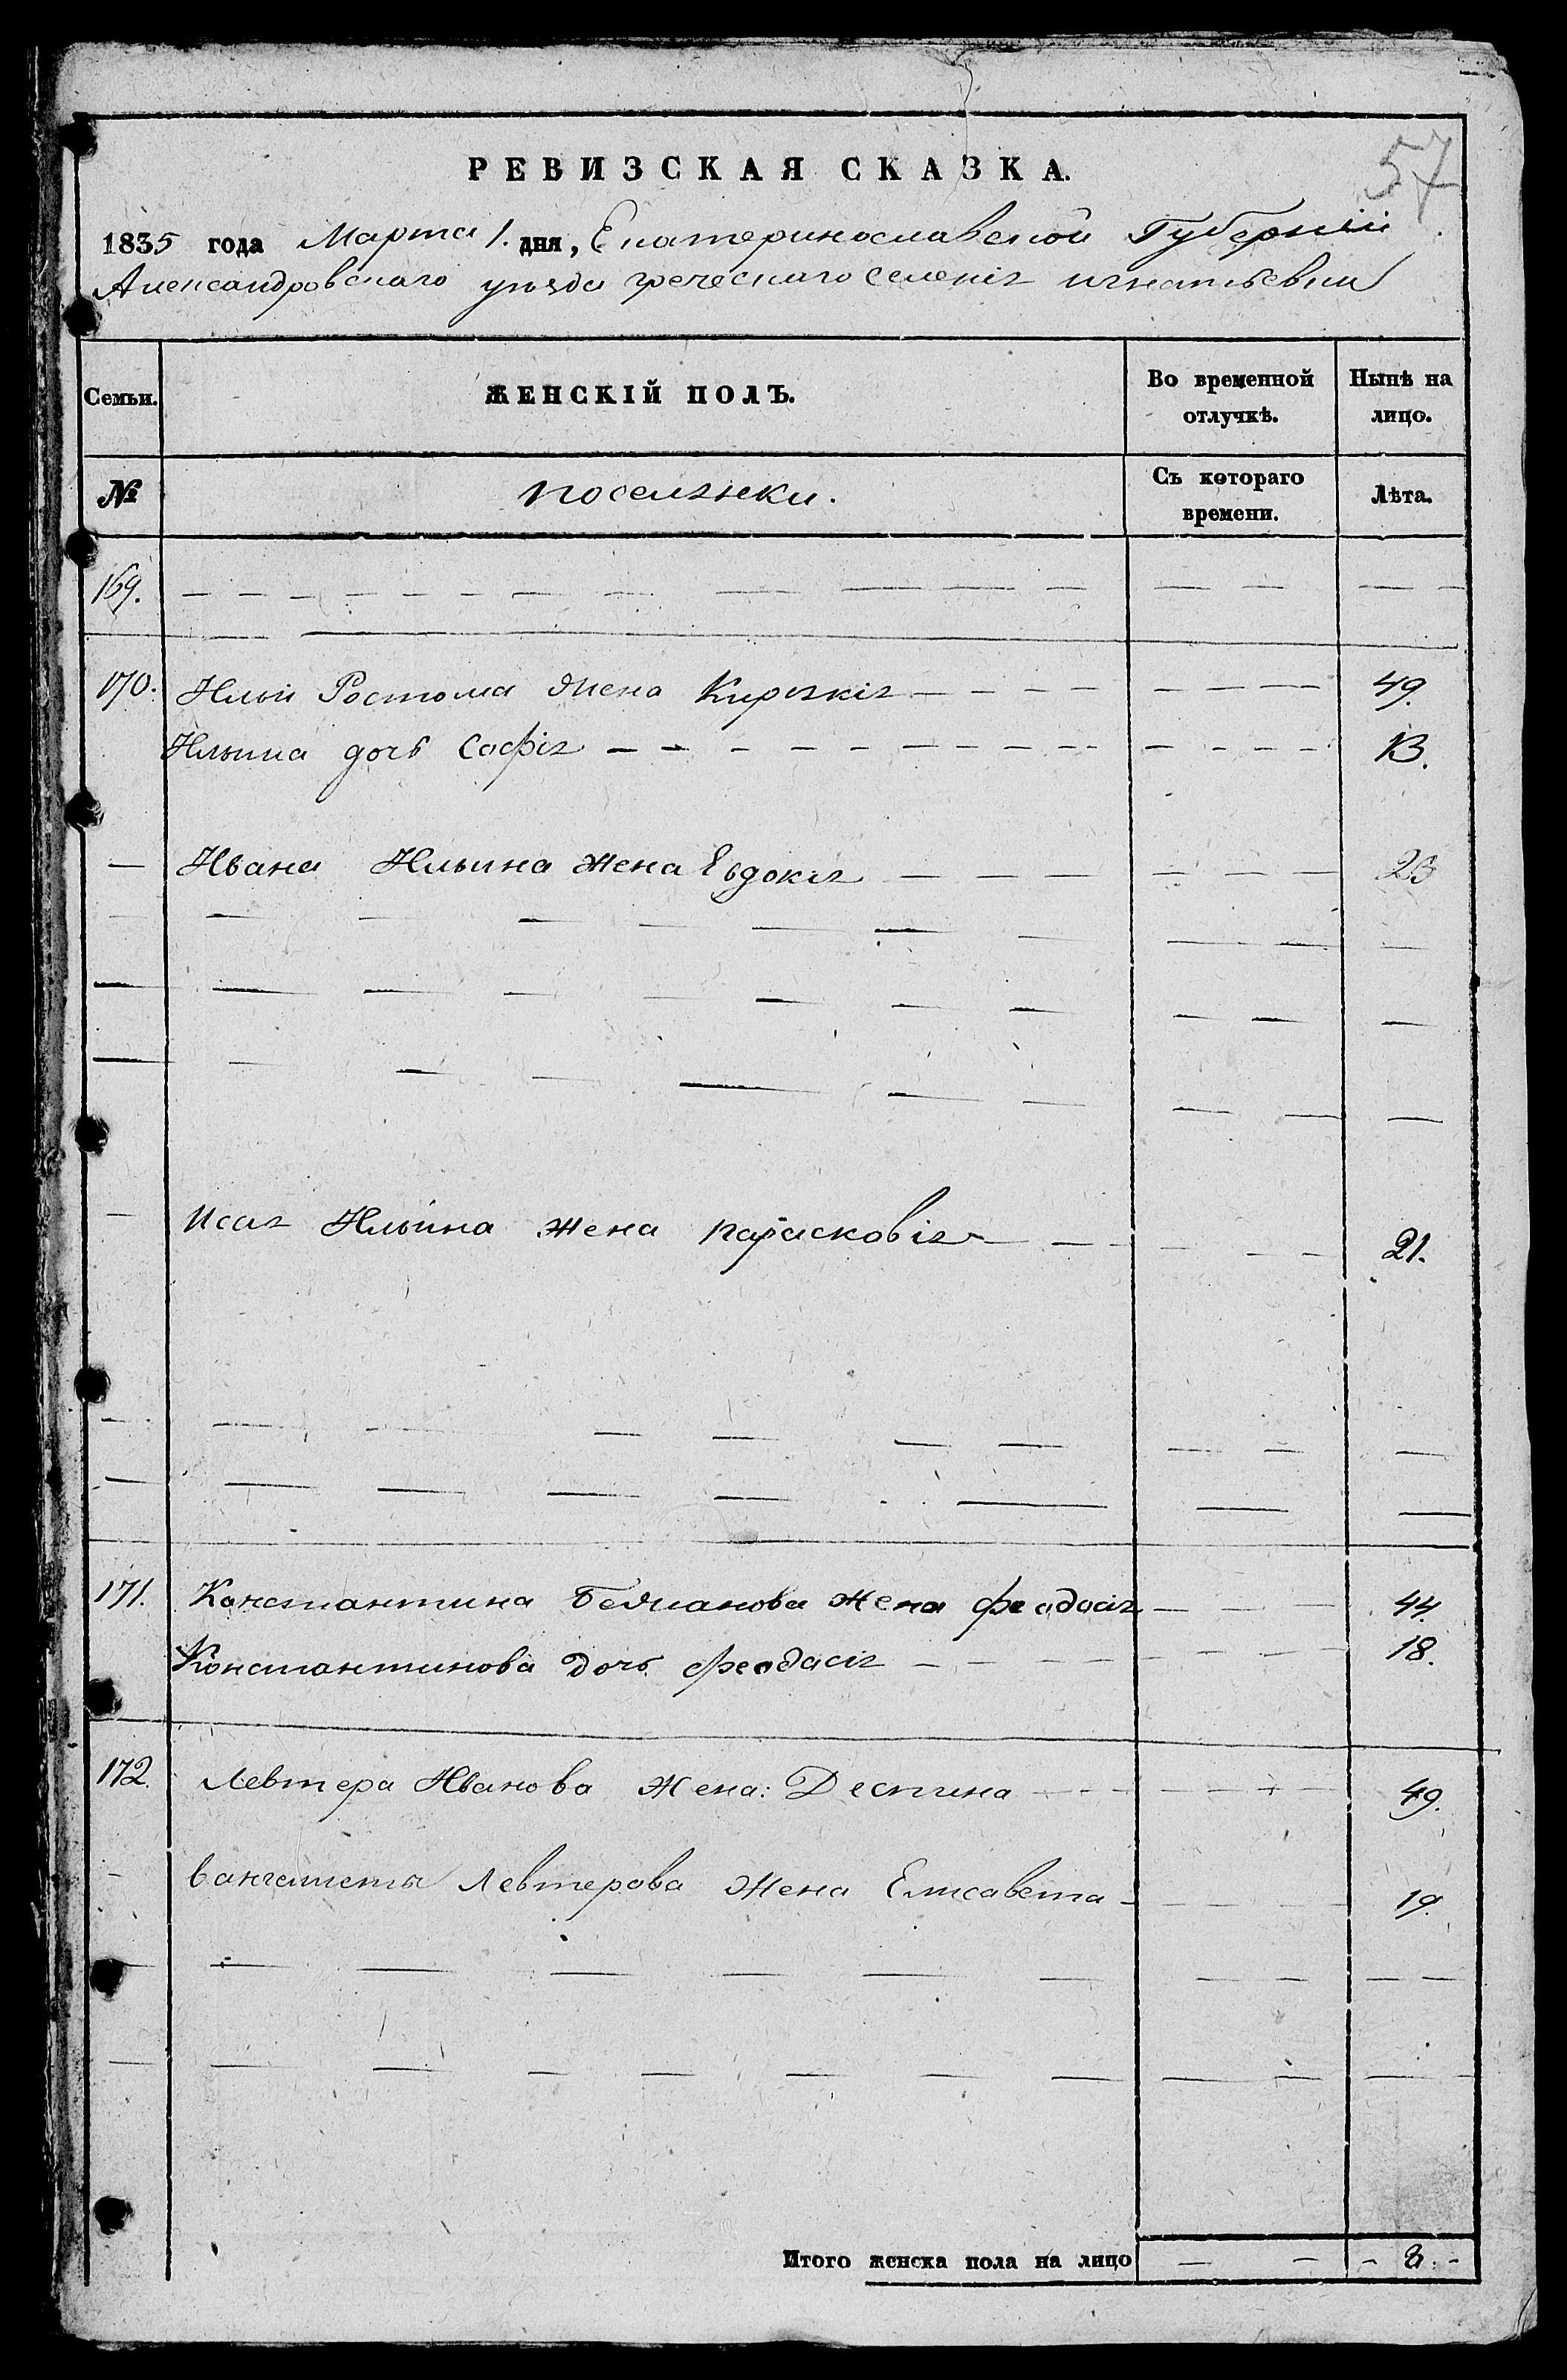 57
РЕВИЗСКАЯ СКАЗКА.
1835 года Марта 1. дня, Екатеринославской Губерніи
Александровскаго уѣзда греческаго селенія игнатьевки
Семьи. ЖЕНСКІЙ ПОЛЪ. Во временной отлучкѣ. Нынѣ на лицо.
№ поселянки. Съ котораго времени. Лѣта.
169. — — — — — —
170. Ильи Ростома жена Кирякія — — — 49.
Ильина дочь Софія — — — 13.
— Ивана Ильина жена Евдокія — — — 23
— Исая Ильина жена парасковія — — — 21.
171. Константина жена феодосія — — — 44.
Константинова дочь феодасія — — — 18.
172. Левтера Иванова жена: Деспина — — — 49.
— Левтерова жена Елисавета — — — 19.
Итого женска пола на лицо — — - 8. -